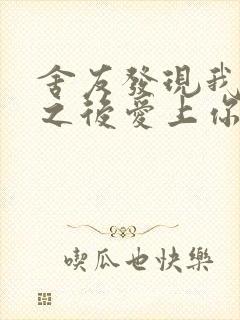 舍友發現我
之後愛上你
喫瓜也快樂